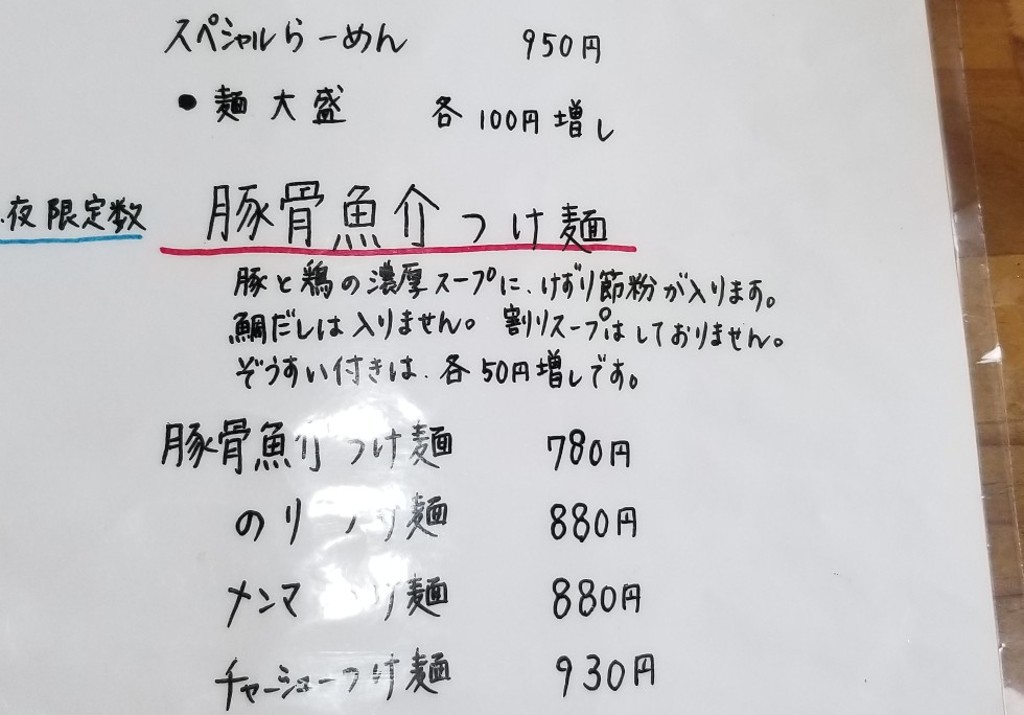 スペシャルらーめん 950円
●麺大盛 各100円増し
夜限定数 豚骨魚介つけ麺
豚と鶏の濃厚スープに、けずり節粉が入ります。
鯛だしは入りません。 割りスープはしておりません。
ぞうすい付きは、各50円増しです。
豚骨魚介つけ麺 780円
のりつけ麺 880円
メンマつけ麺 880円
チャーシューつけ麺 930円